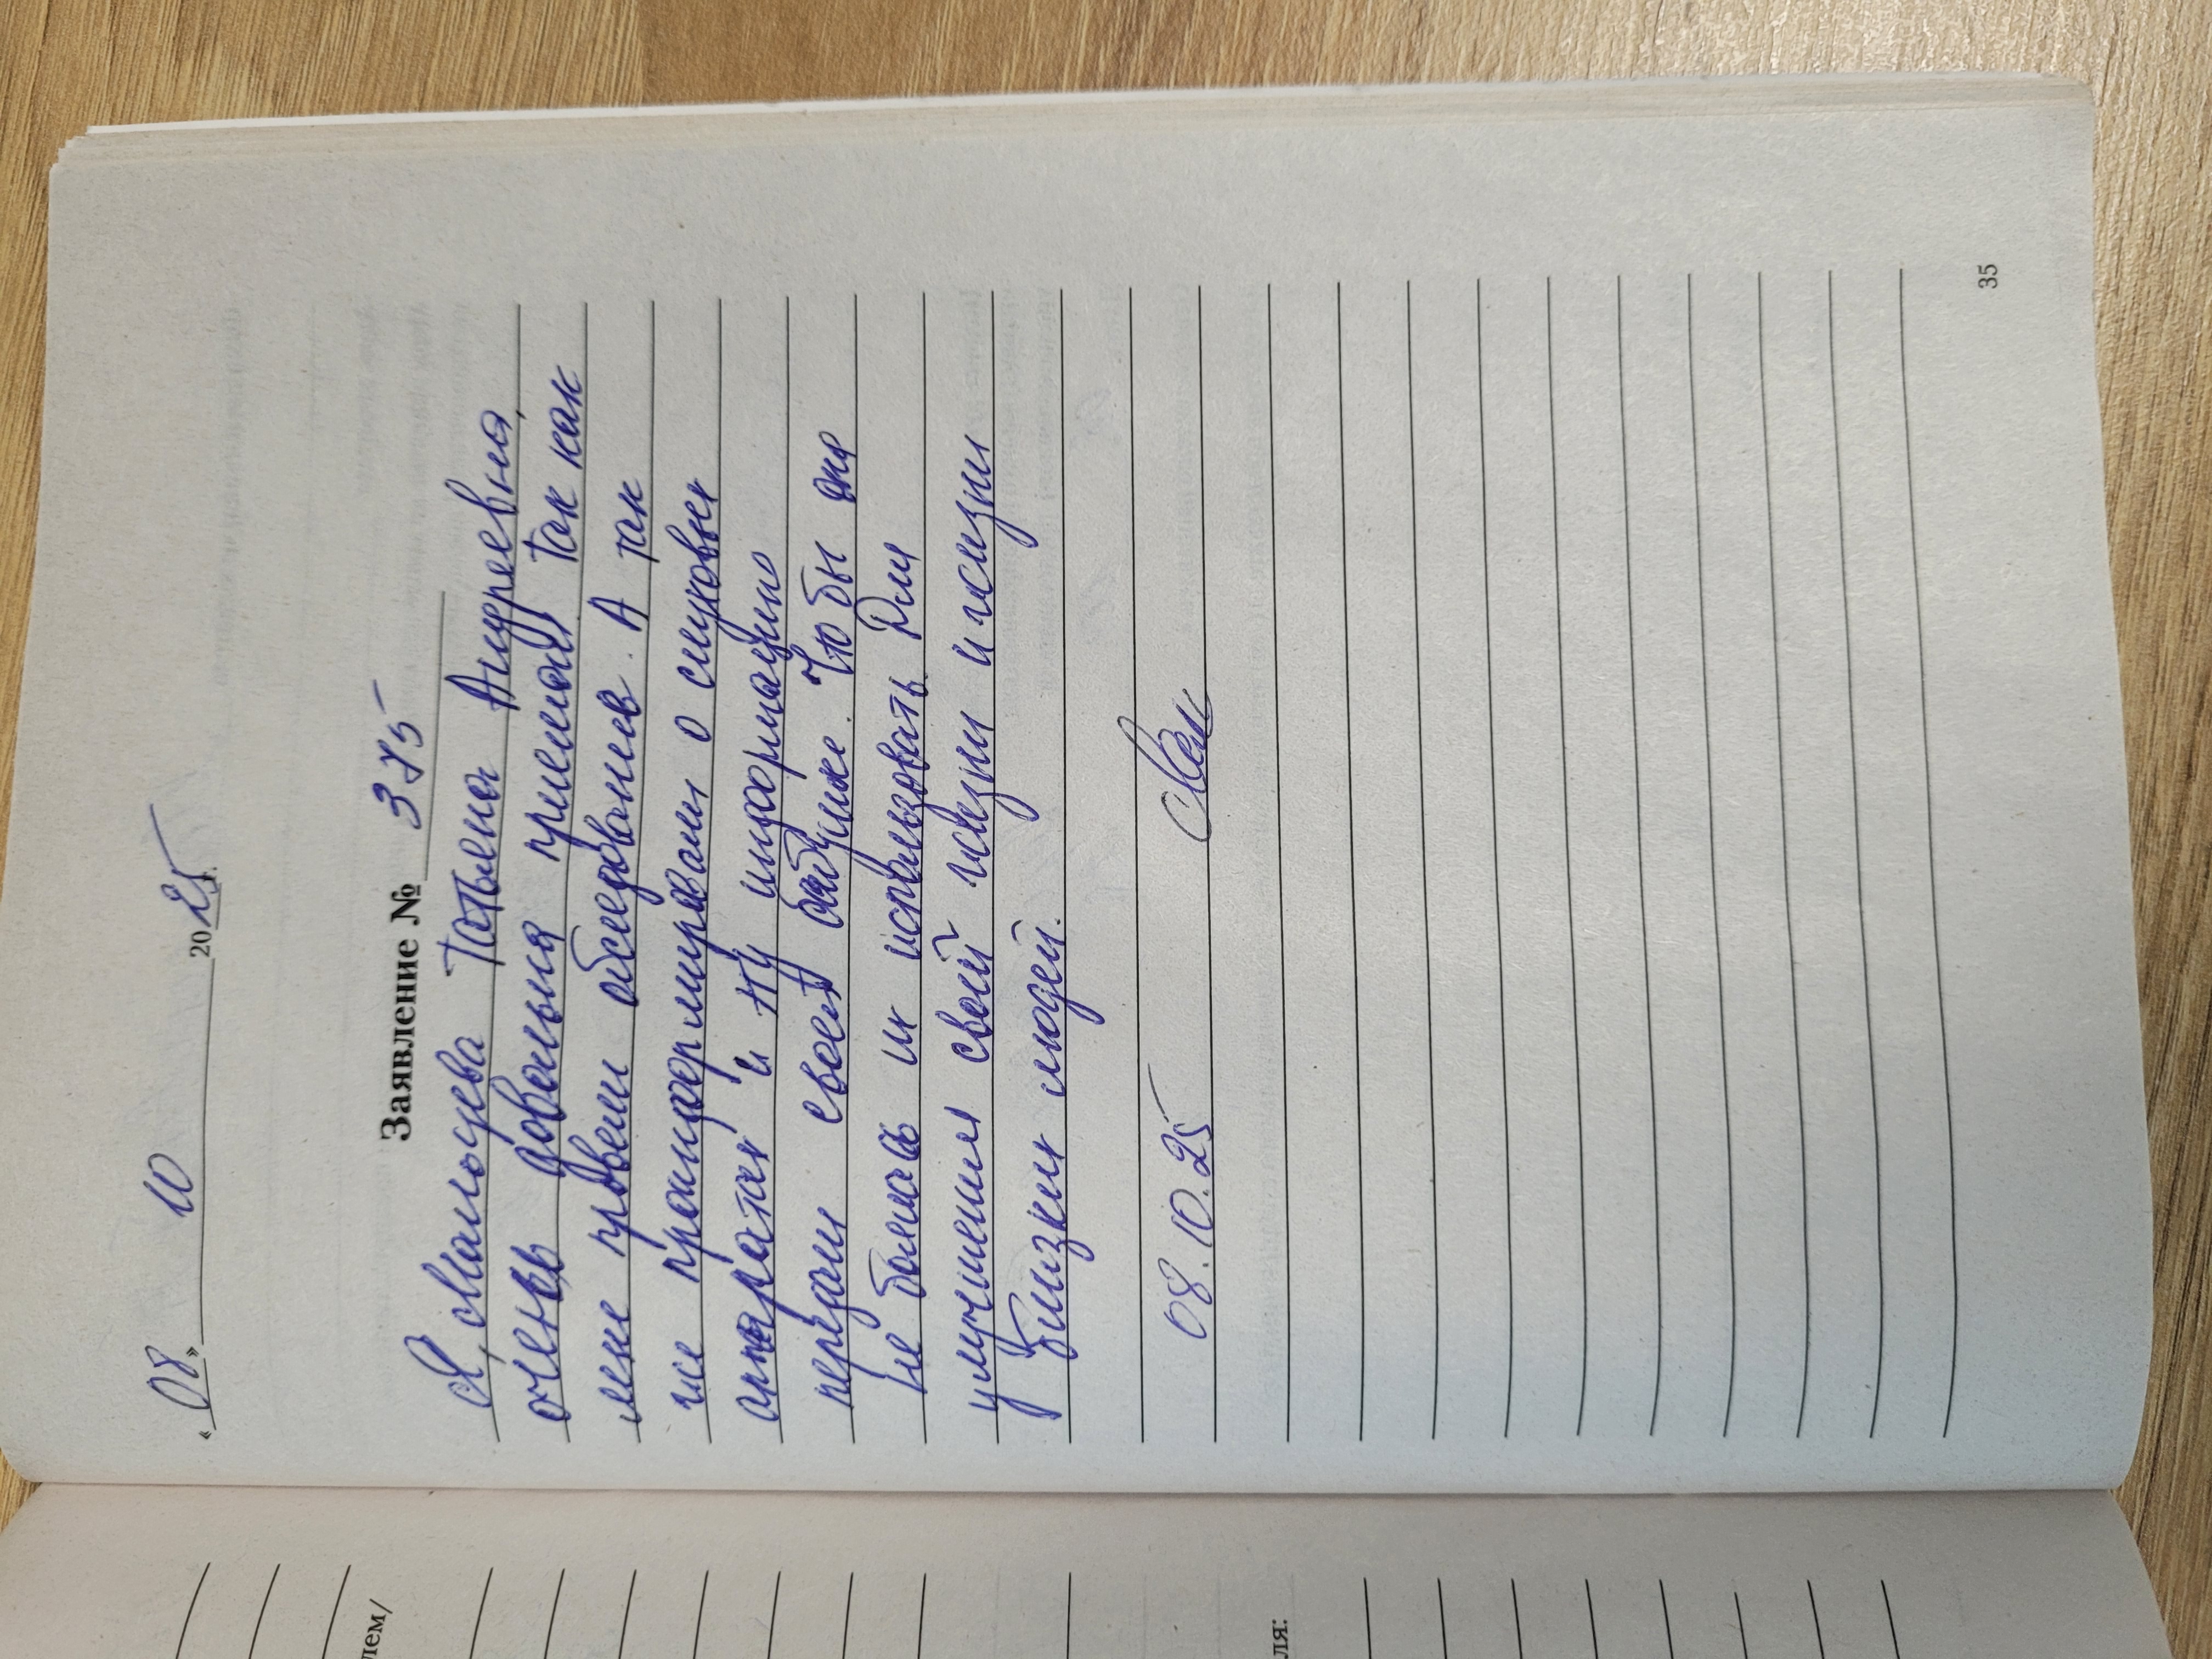 « 08 » 10 20 25 г.
Заявление № 375
Я, Малоцева Татьяна Андреевна,
очень довольна приемом так как
мне провели обследование. А так
же проинформировали о слуховых
аппаратах и информацию
передали своей бабушке. Что бы она
не боялась их использовать Для
улучшения своей жизни и жизни
близких людей.
08.10.25
35
лем/
ля: